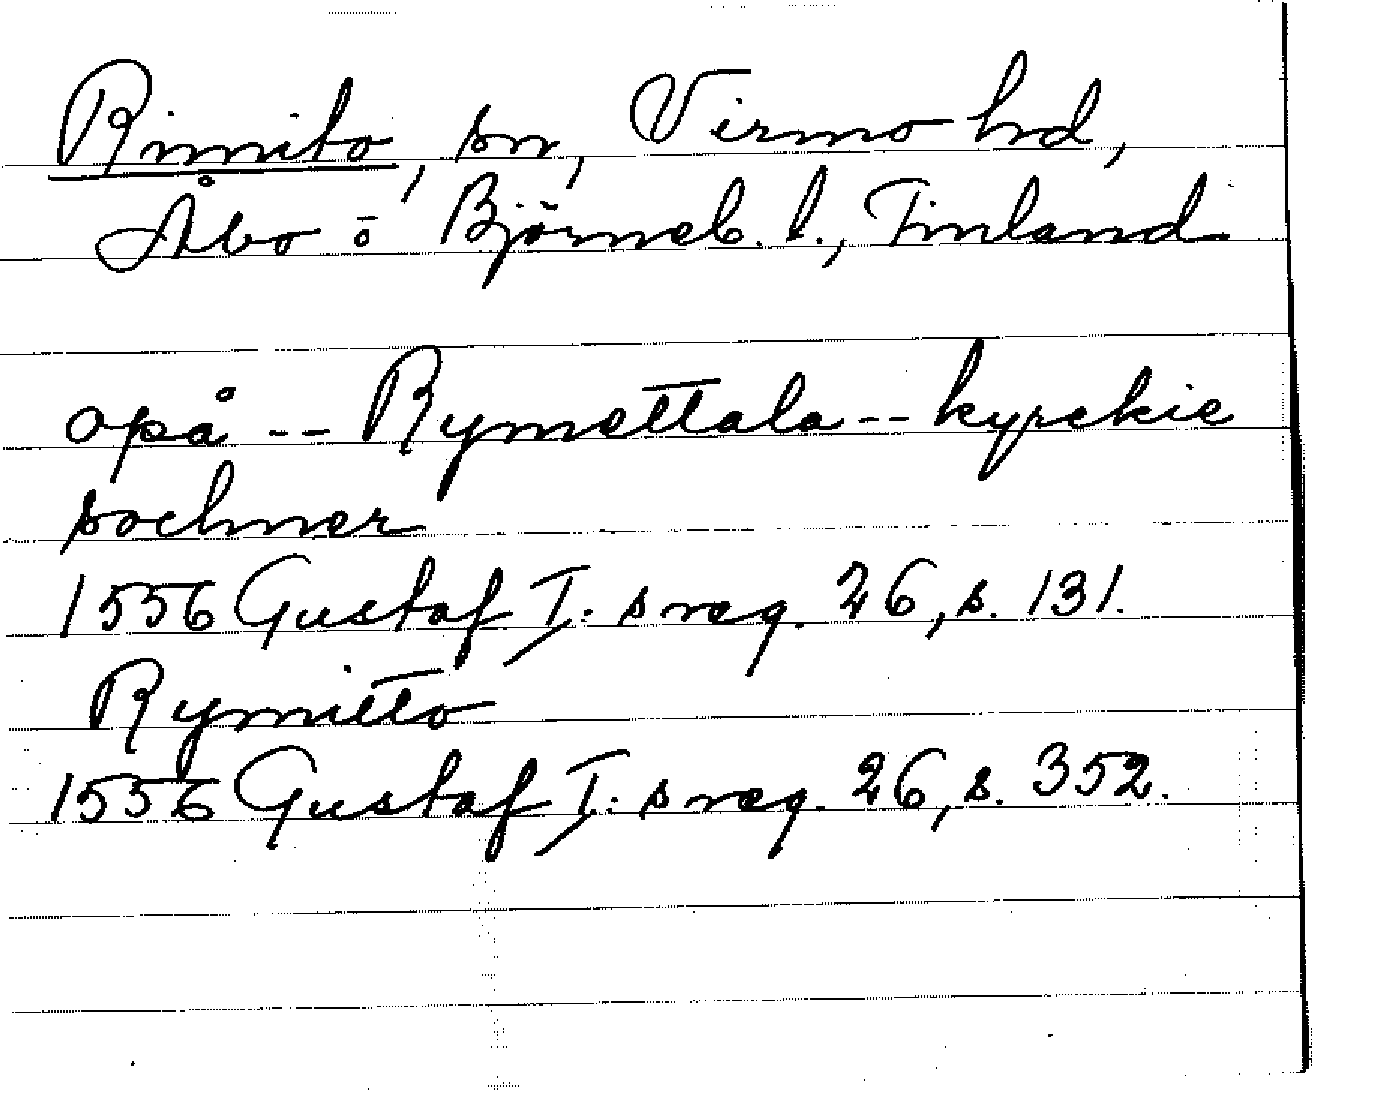 Rimito, sn, Virmo hd,
Åbo o Björneb. l., Finland
opå -- Rymettala -- kyrckie
sochner
1556 Gustaf I:s reg. 26, s. 131.
Rymitto
1556 Gustaf I:s reg. 26, s. 352.